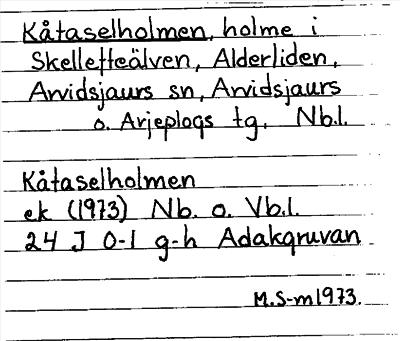 Kåtaselholmen, holme i
Skellefteälven, Alderliden,
Arvidsjaurs sn, Arvidsjaurs
o. Arjeplogs tg, Nb.l.
Kåtaselholmen
ek (1973) Nb. o. Vb.l.
24 J 0-1 g-h Adakgruvan
M.S-m 1973.